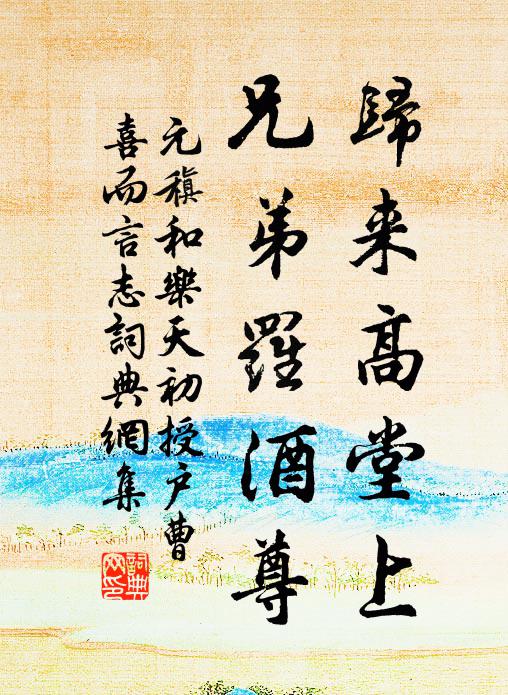 歸来高堂上
兄弟羅酒尊
元稹和樂天初授户曹
喜而言志詞典網集
詞典
网印